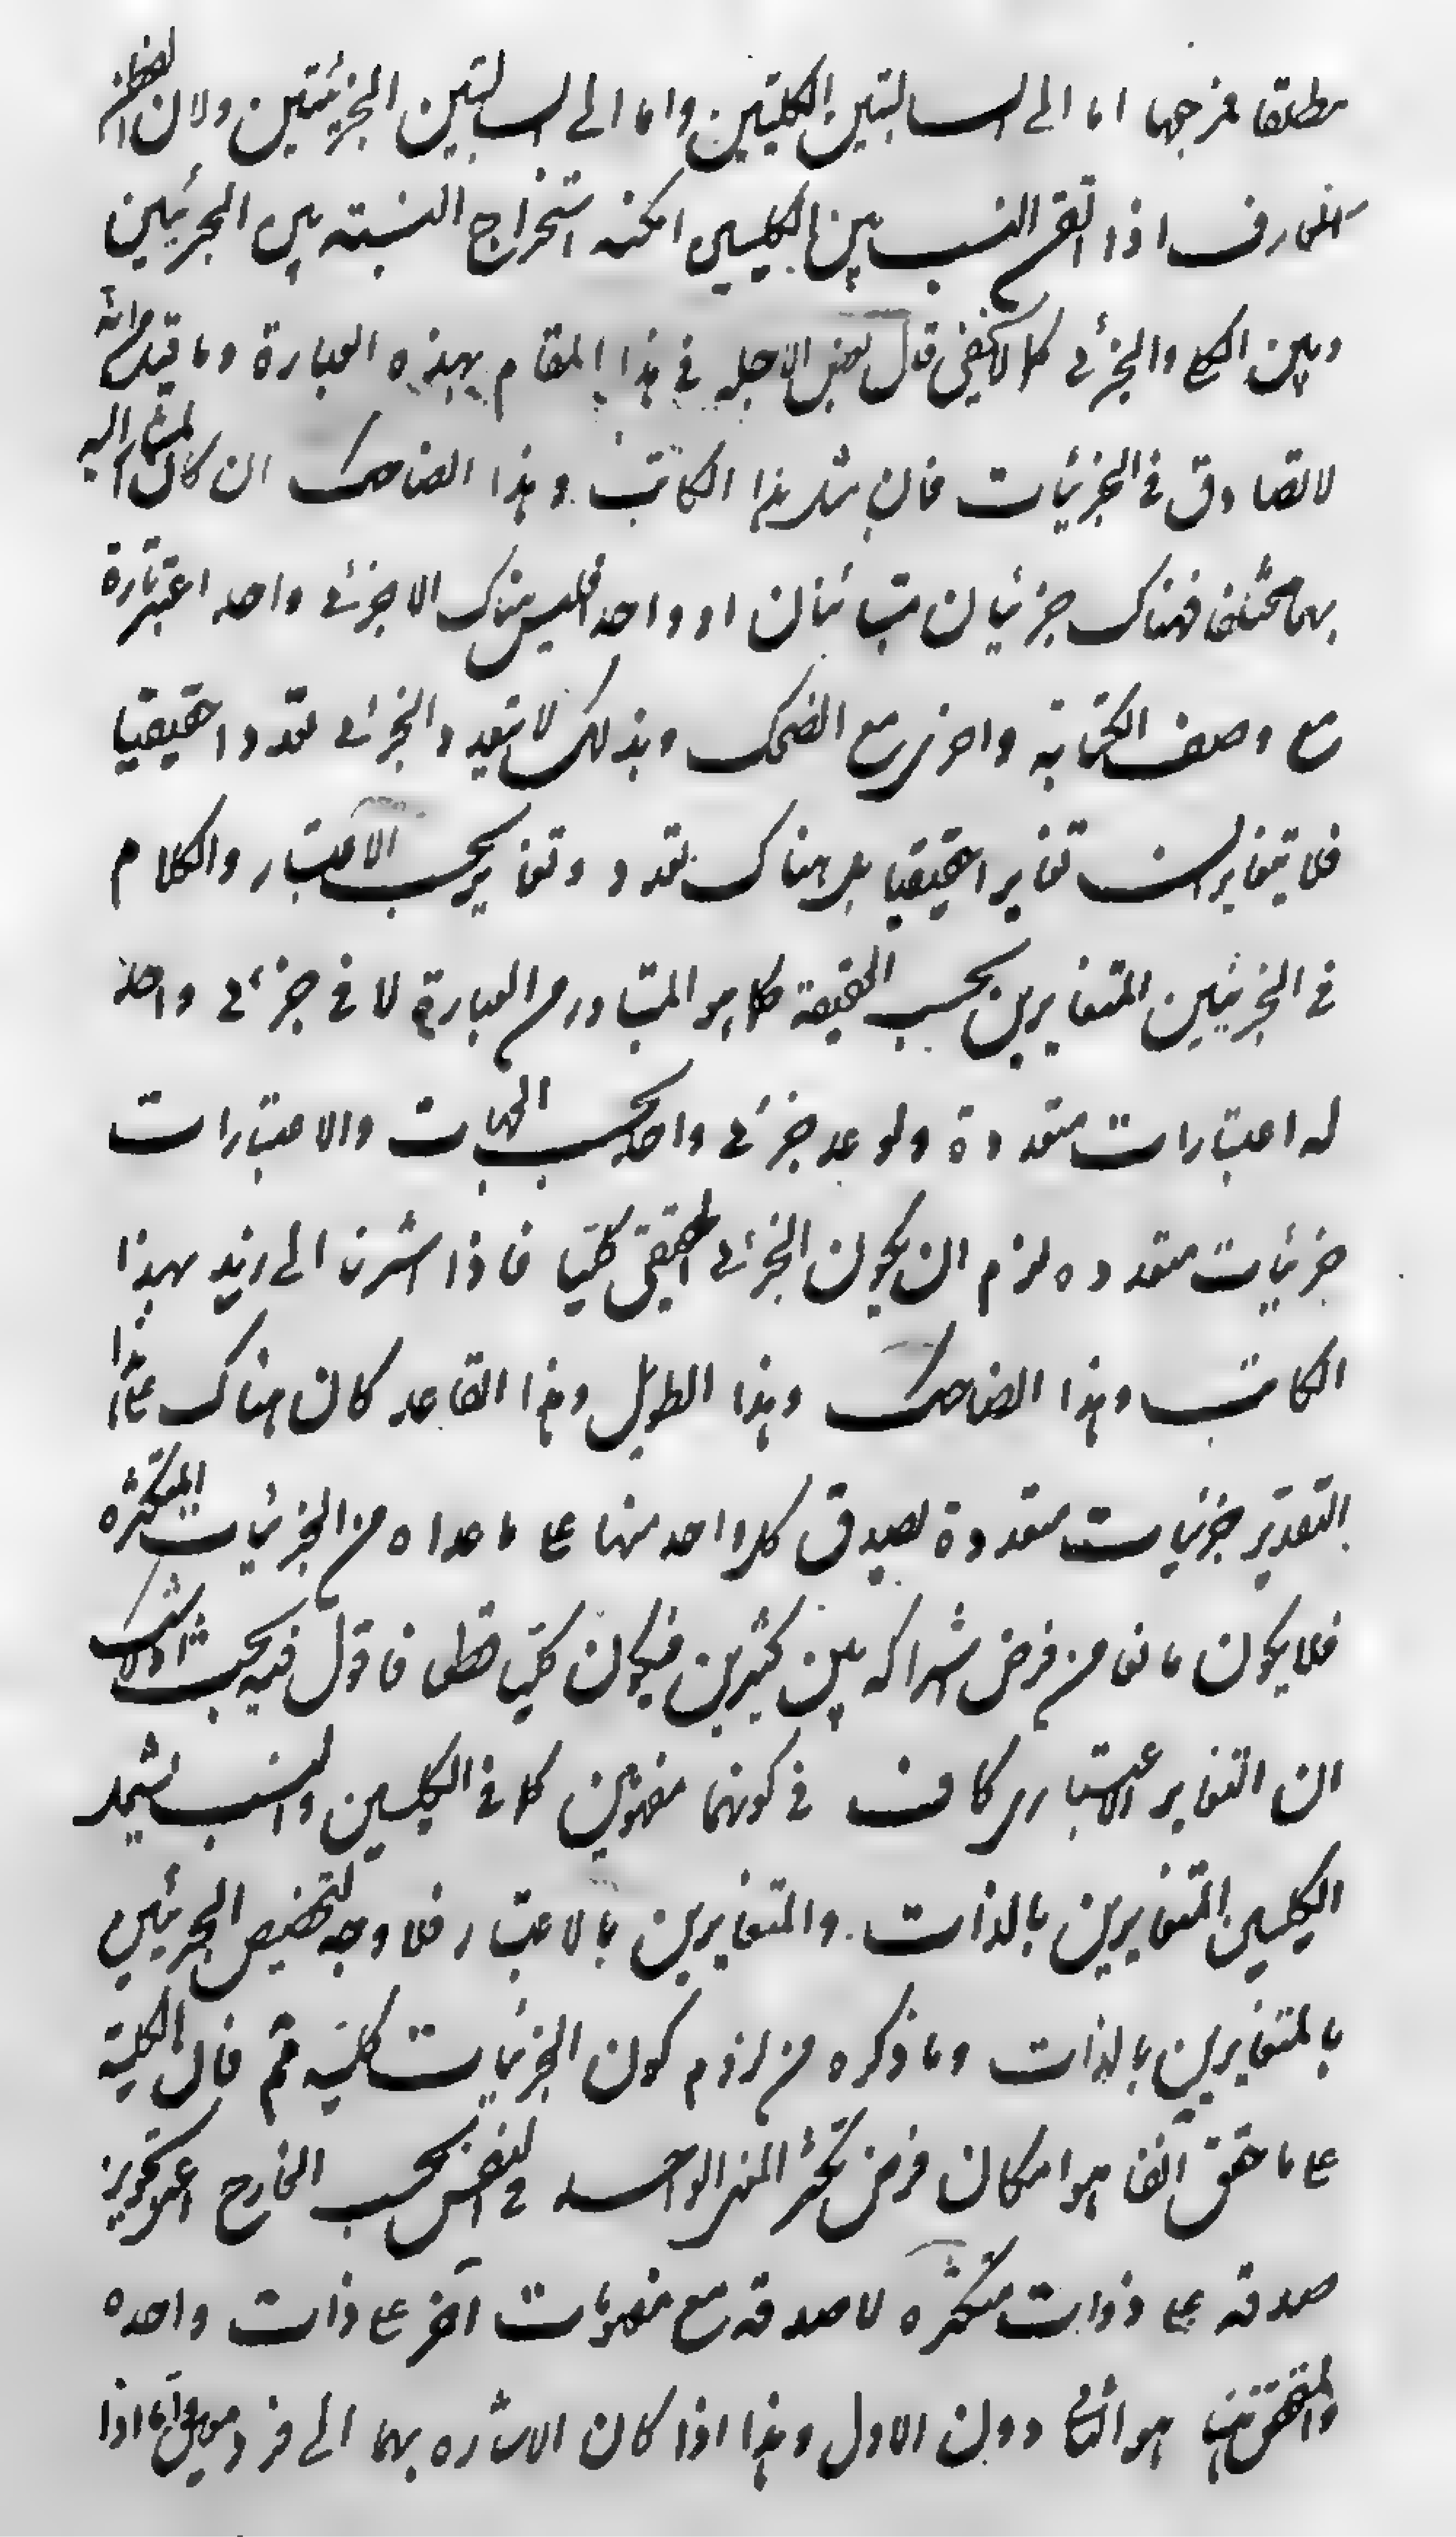 مطلقا فمرجعها اما الى السالبتين الكليتين واما الى السالبتين الجزئيتين ولان الفطن
العارف اذا اتقن النسب بين الكليين امكنه استخراج النسبة بين الجزئيين
وبين الكلي والجزئي كما لا يخفى قال بعض الاجلة في هذا المقام بهذه العبارة وما قيل من انه
لا تصادق في الجزئيات فان مثل هذا الكاتب وهذا الضاحك ان كان المشار اليه
بهما مختلفا فهناك جزئيان متباينان او واحدا فليس هناك الا جزئي واحد اعتبر تارة
مع وصف الكتابة واخرى مع الضحك وبذلك لا يتعدد الجزئي تعددا حقيقيا
فلا يتغايران تغايرا حقيقيا بل هناك تعدد وتغاير بحسب الاعتبار والكلام
في الجزئيين المتغايرين بحسب الحقيقة كما هو المتبادر من العبارة لا في جزئي واحد
له اعتبارات متعددة ولو عد جزئي واحد بحسب الجهات والاعتبارات
جزئيات متعدده لزم ان يكون الجزئي الحقيقي كليا فاذا اشرنا الى زيد بهذا
الكاتب وهذا الضاحك وهذا الطويل وهذا القاعد كان هناك على هذا
التقدير جزئيات متعددة يصدق كل واحد منها على ما عداه من الجزئيات المتكثره
فلا يكون مانعا من فرض اشتراكه بين كثيرين فيكون كليا قطعا فاقول فيه بحث اذ لا شك
ان التغاير الاعتبارى كاف في كونهما مفهومين كما في الكليين والنسب يشمل
الكليين المتغايرين بالذات والمتغايرين بالاعتبار فلا وجه لتخصيص الجزئيين
بالمتغايرين بالذات وما ذكره من لزوم كون الجزئيات كلية تم فان الكلية
على ما حقق آنفا هو امكان فرض تكثر المعنى الواحد في نفس بحسب الخارج اعنى تجويز
صدقه على ذوات متكثره لا صدقه مع مفهومات آخر على ذات واحده
والمتحقق هنا هو الثانى دون الاول وهذا اذا كان الاشاره بهما الى فرد معين واما اذا